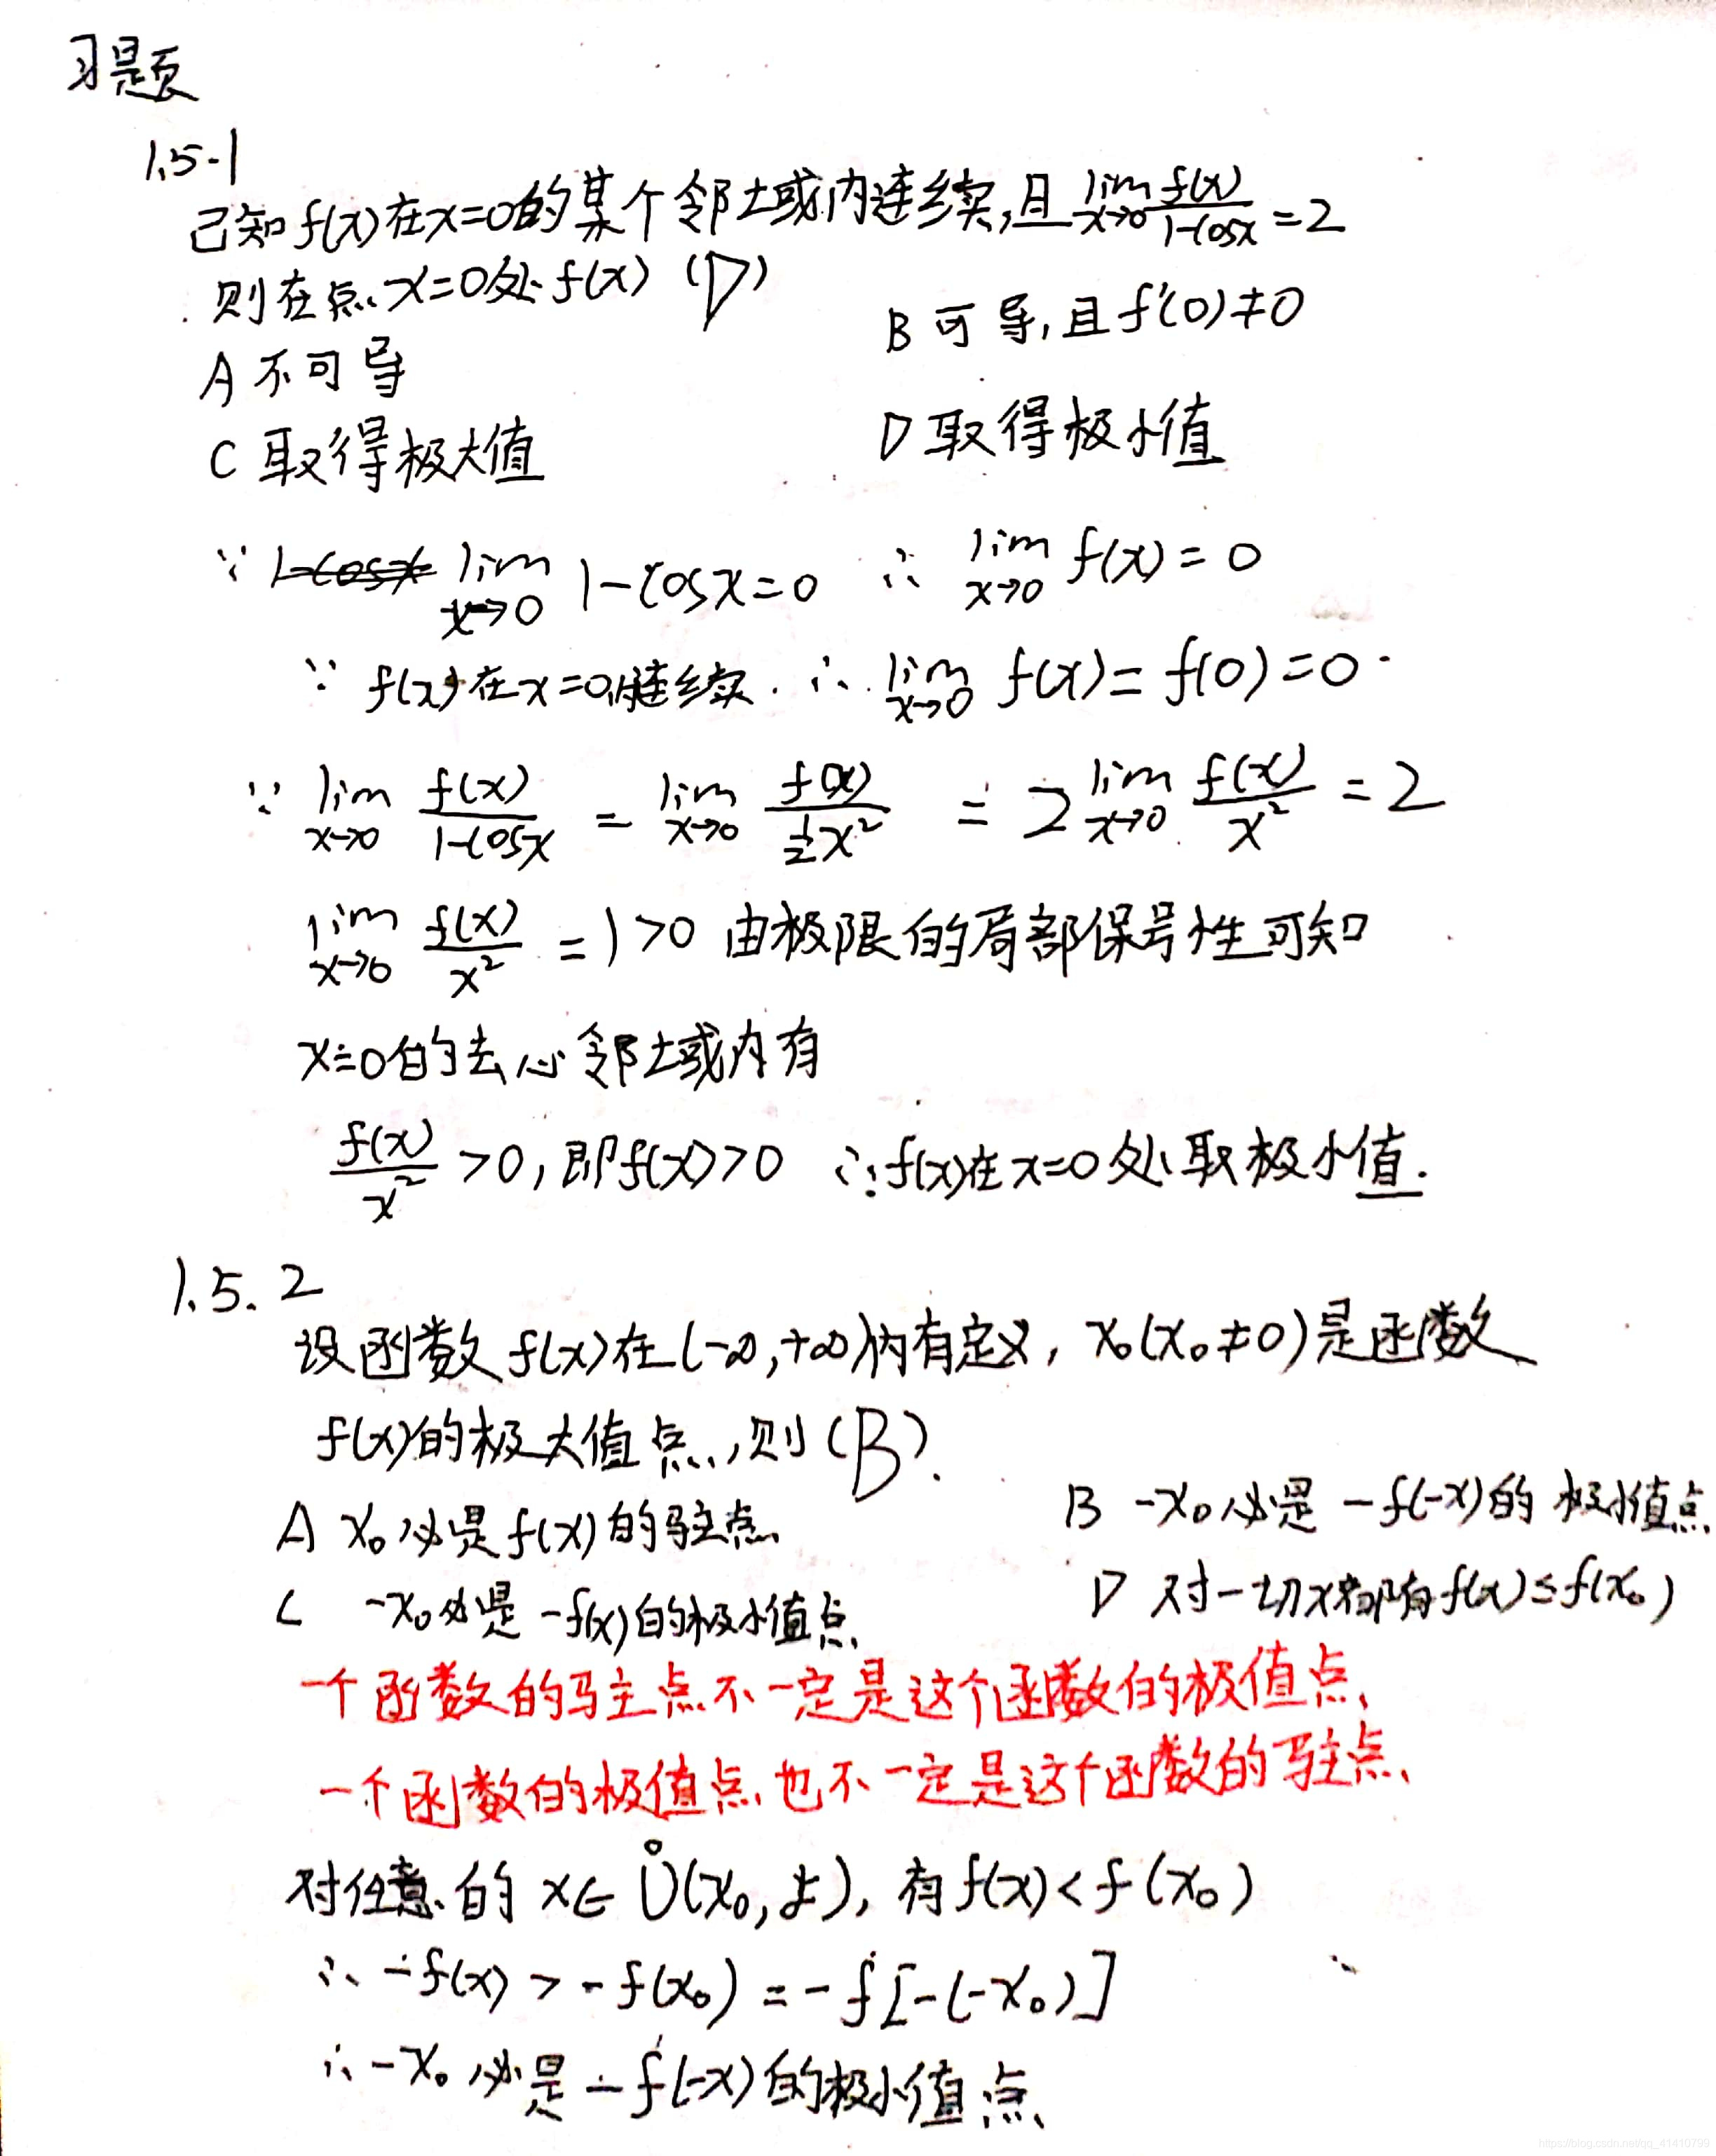 习题
1.5-1
已知f(x)在x=0的某个邻域内连续,且lim x→0 f(x)/(1-cosx)=2
则在点x=0处f(x) (D)
A 不可导
B 可导,且f'(0)≠0
C 取得极大值
D 取得极小值
∵ 1-cosx lim x→0 1-cosx=0 ∴ lim x→0 f(x)=0
∵ f(x)在x=0处连续. ∴ lim x→0 f(x)=f(0)=0
∵ lim x→0 f(x)/(1-cosx) = lim x→0 f(x)/(½x²) = 2 lim x→0 f(x)/x² = 2
lim x→0 f(x)/x² = 1>0 由极限的局部保号性可知
x=0的去心邻域内有
f(x)/x² >0,即f(x)>0 ∴f(x)在x=0处取极小值.
1.5.2
设函数f(x)在(-∞,+∞)内有定义, x₀(x₀≠0)是函数
f(x)的极大值点,则(B).
A x₀必是f(x)的驻点
B -x₀必是-f(-x)的极小值点
C -x₀必是-f(x)的极小值点
D 对一切x都有f(x)≤f(x₀)
一个函数的驻点不一定是这个函数的极值点,
一个函数的极值点也不一定是这个函数的驻点、
对任意的x∈Ů(x₀,δ),有f(x)<f(x₀)
∴ -f(x)>-f(x₀)=-f[-(-x₀)]
∴ -x₀必是-f(-x)的极小值点
https://blog.csdn.net/qq_41410799